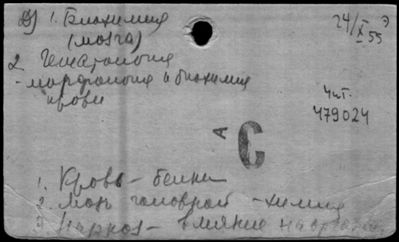 1. Биохимия
(мозга)
2. Гематология
- морфология и биохимия
крови
24/X 55
Чит.
479024
A
C
1. Кровь - белки
2. Мозг головной - химия
3. Наркоз - влияние на